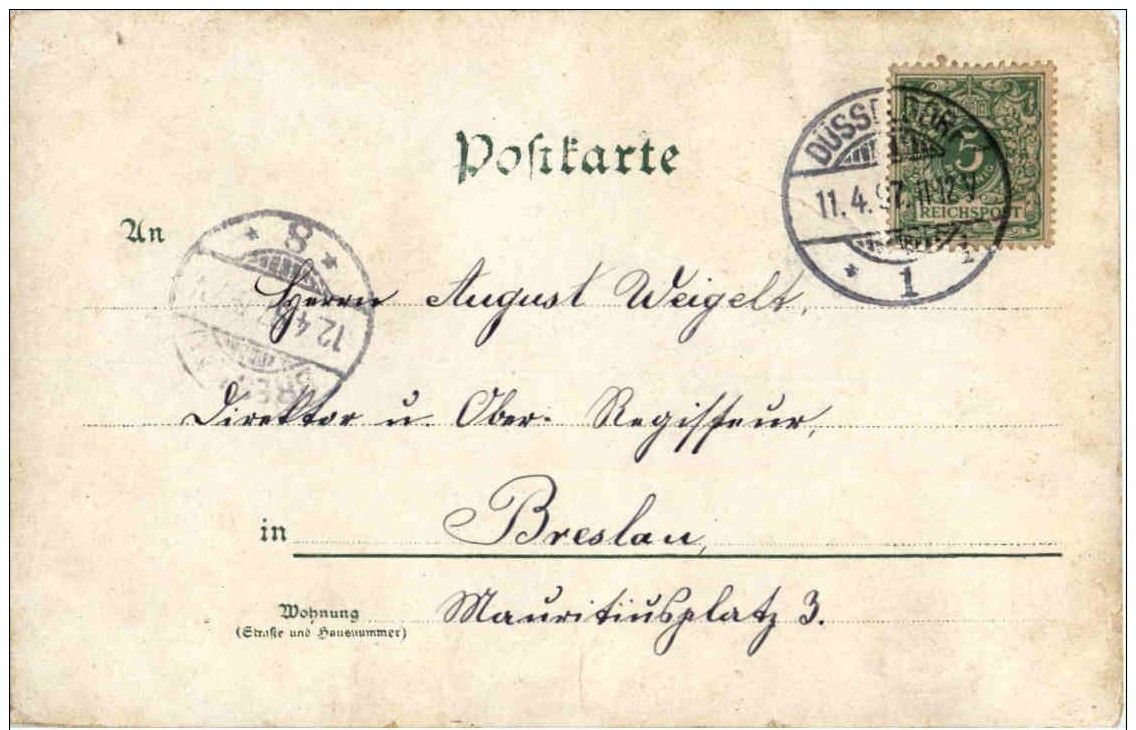 Postkarte
DÜSSELDORF
11.4.97. 11-12 V
* 1
5
REICHSPOST
An
* 8 *
12.4
Herrn August Weigelt,
Direktor u. Ober-Regisseur,
in Breslau,
Wohnung
(Straße und Hausnummer)
Mauritiusplatz 3.